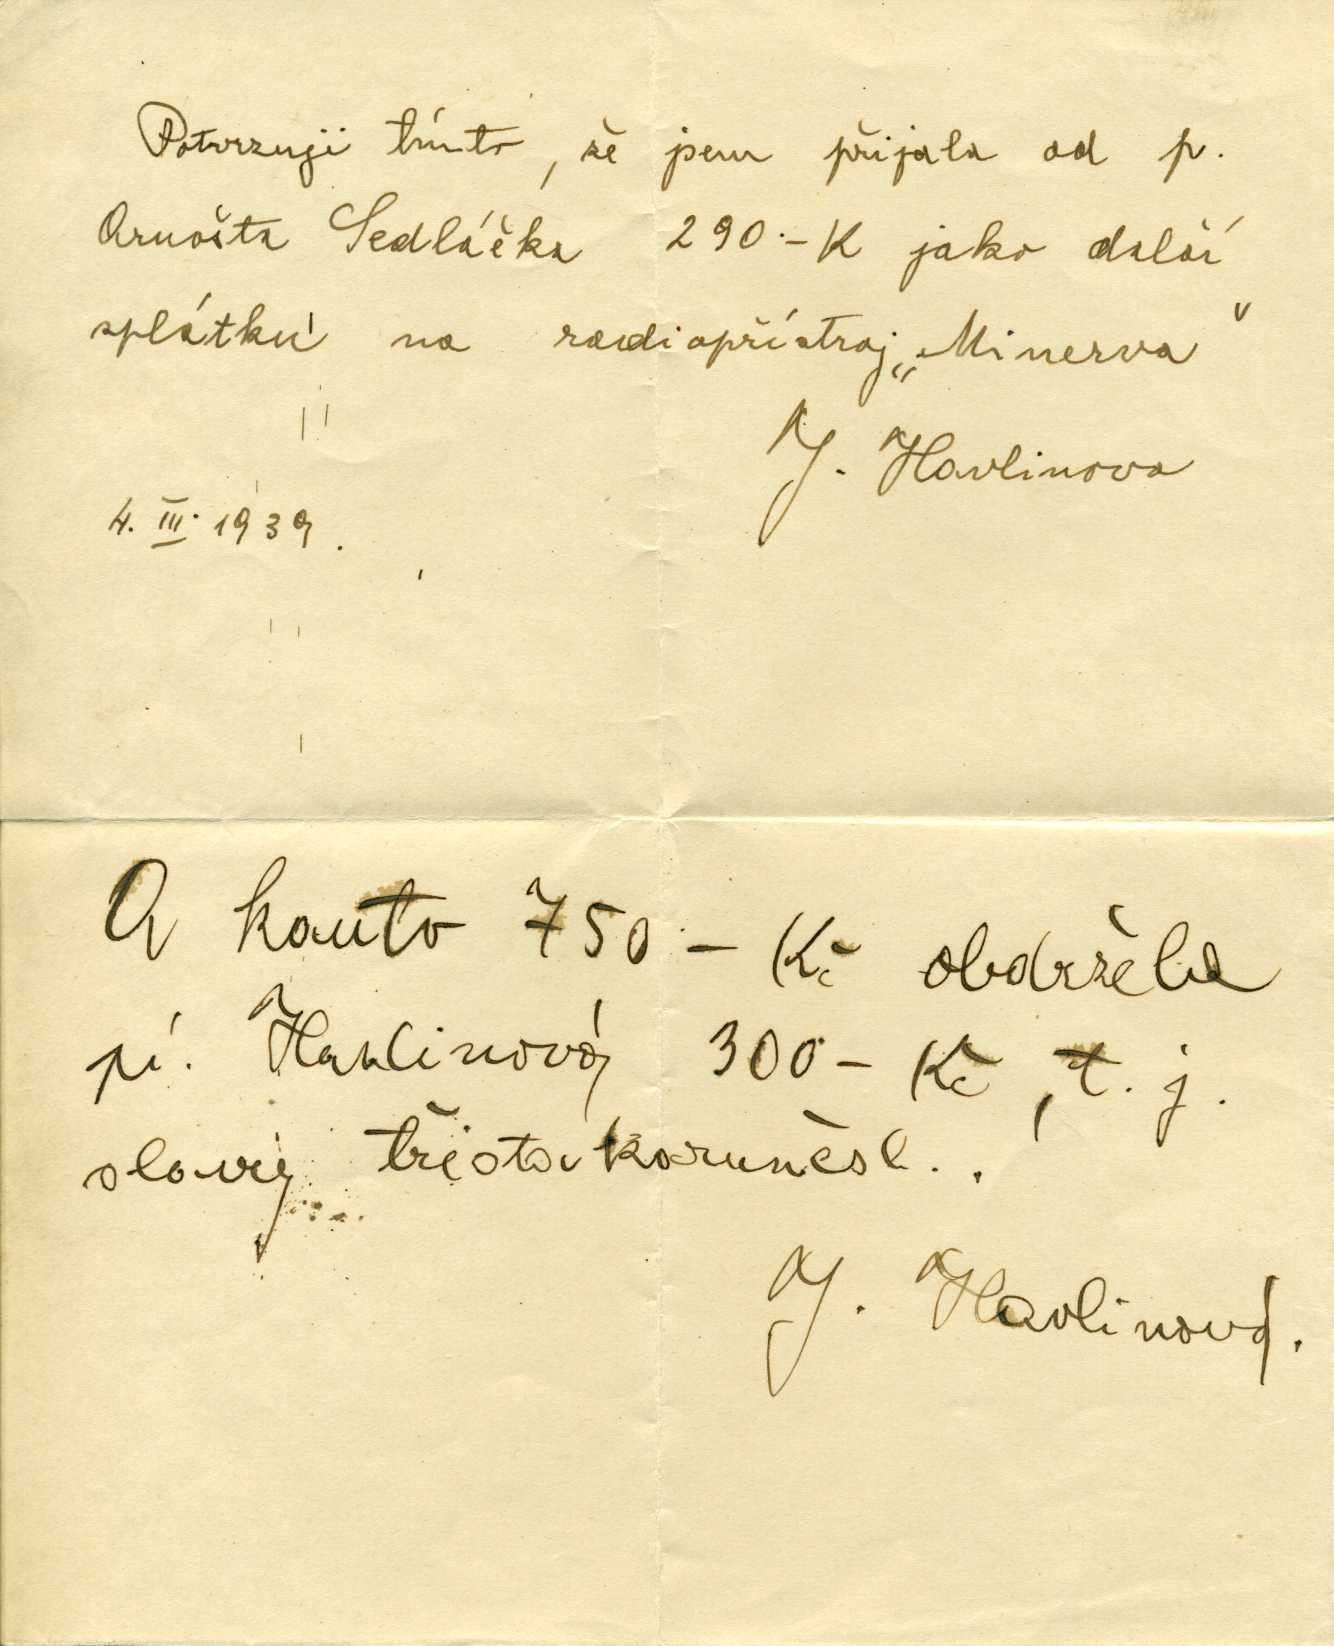 Potvrzuji tímto, že jsem přijala od p.
Arnošta Sedláčka 290.- K jako další
splátku na radiopřístroj „Minerva“
J. Havlinova
4. III. 1939.
A konto 750.- Kč obdržela
pí. Havlinová 300.- Kč, t. j.
slovy třistakorunčsl..
J. Havlinová.